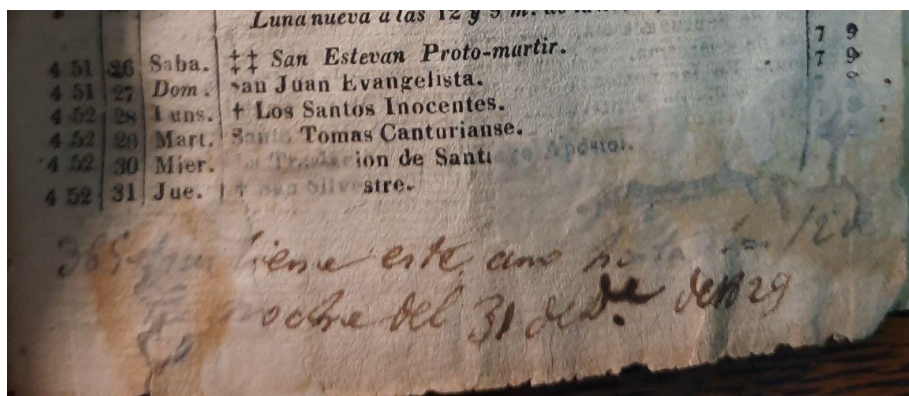 Luna nueva a las 12 y 5 m. de la
4 51 26 Saba. ‡‡ San Estevan Proto-martir. 7 9
4 51 27 Dom. san Juan Evangelista. 7 9
4 52 28 Luns. † Los Santos Inocentes.
4 52 29 Mart. Santo Tomas Canturianse.
4 52 30 Mier. La Traslacion de Santiago Apóstol.
4 52 31 Jue. † san Silvestre.
365 tiene este año hasta las 12 de
noche del 31 de De de 1829